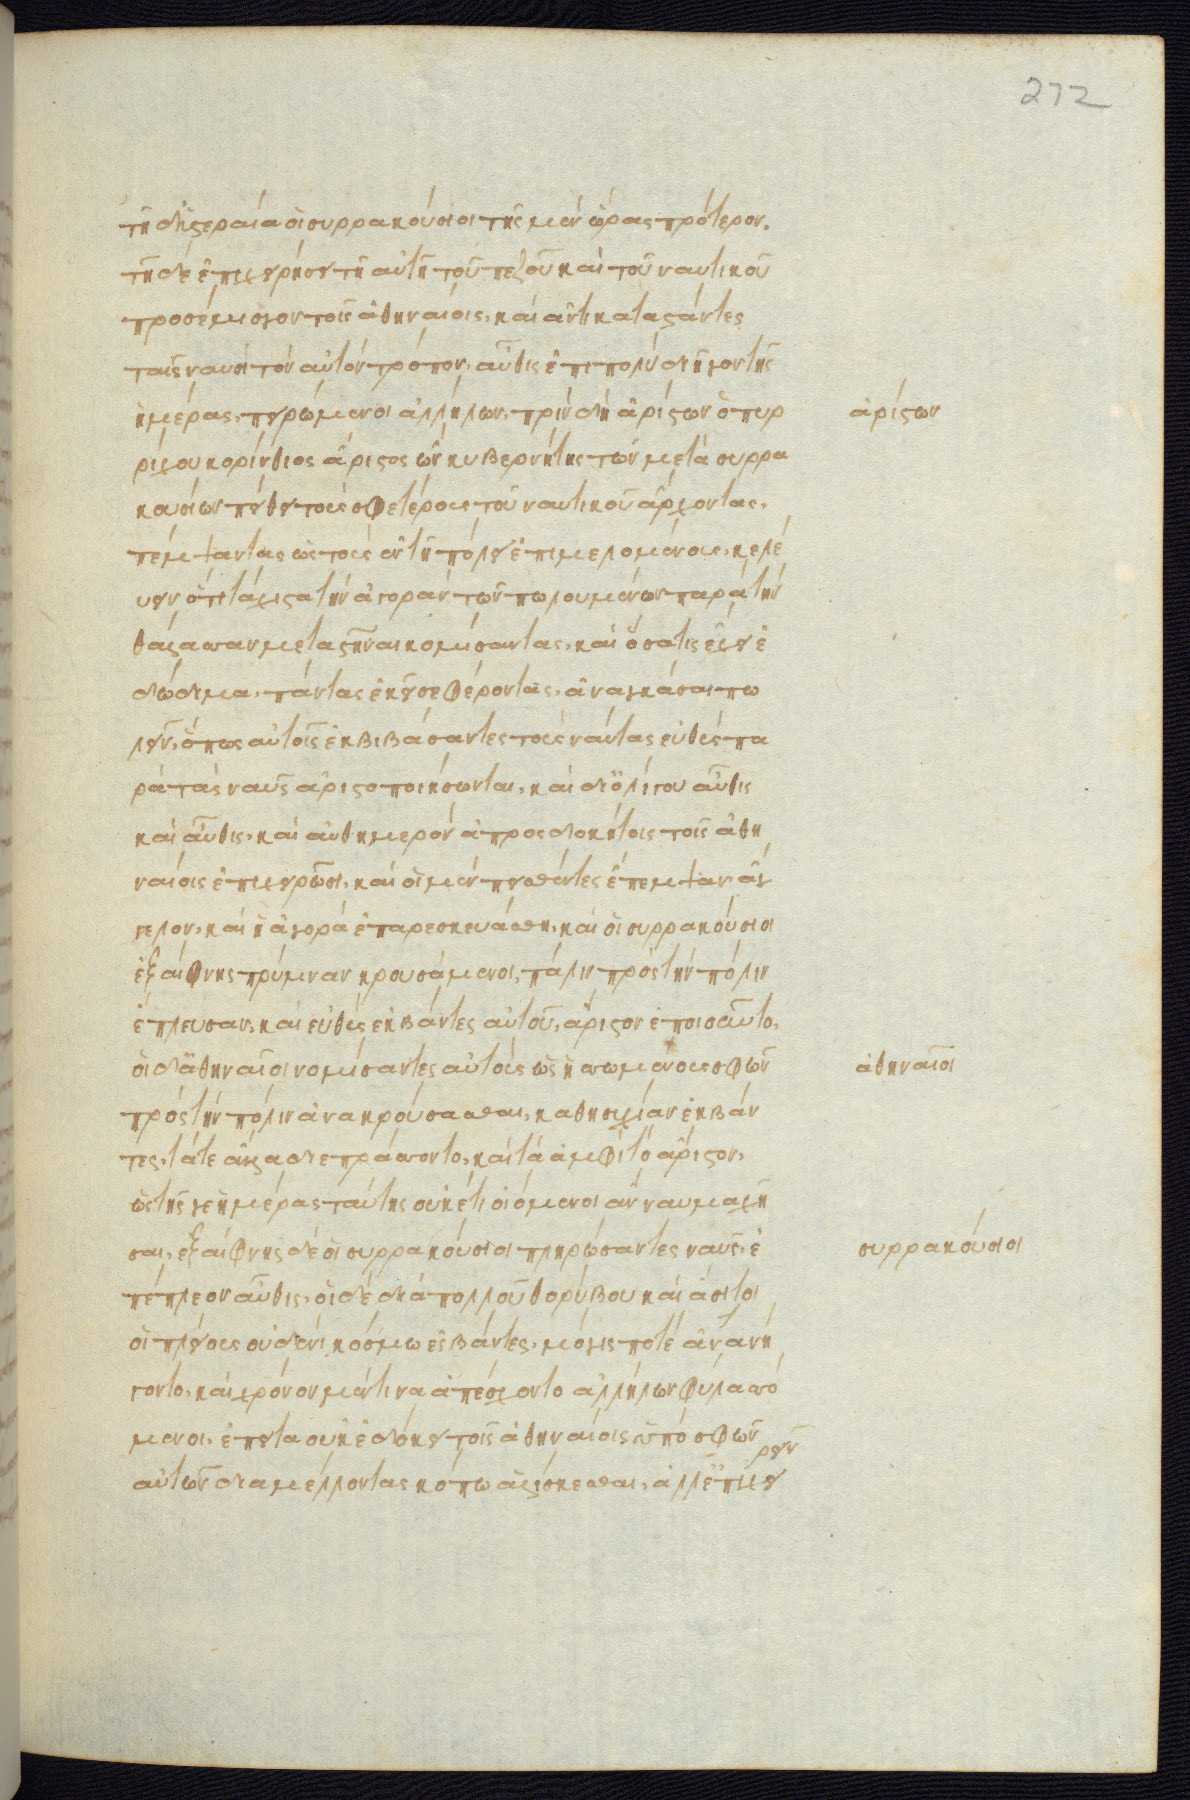 272
τῆ δ' ὑστεραία οἱ συρρακούσιοι τῆς μὲν ὥρας πρότερον.
τῆ δὲ ἐπιχειρήσει τῆ αὐτῆ τοῦ πεζοῦ καὶ τοῦ ναυτικοῦ
προσέμισγον τοῖς ἀθηναίοις, καὶ ἀντικαταστάντες
ταῖς ναυσὶ τὸν αὐτὸν τρόπον, αὖθις ἐπιπολὺ διῆγον τῆς
ἡμέρας, πειρώμενοι ἀλλήλων, πρὶν δὴ ἀρίστων ὁ πυρ
ρίχου κορίνθιος ἄριστος ὢν κυβερνήτης τῶν μετὰ συρρα
κουσίων πείθει τοὺς σφετέρους τοῦ ναυτικοῦ ἄρχοντας,
πέμψαντας ὡς τοὺς ἐν τῆ πόλει ἐπιμελομένους, κελέ
υειν ὅτι τάχιστα τὴν ἀγορὰν τῶν πωλουμένων παρὰ τὴν
θάλασσαν μεταστῆναι κομίσαντας, καὶ ὅσα τις ἔχει ἐ
δώδιμα, πάντας ἐκεῖσε φέροντας, ἀναγκάσαι πω
λεῖν, ὅπως αὐτοῖς ἐκβιβάσαντες τοὺς ναύτας εὐθὺς πα
ρὰ τὰς ναῦς ἀριστοποιήσωνται, καὶ δι' ὀλίγου αὖθις
καὶ αὖθις, καὶ αὐθημερὸν ἀπροσδοκήτοις τοῖς ἀθη
ναίοις ἐπιχειρῶσι, καὶ οἱ μὲν πεισθέντες ἔπεμψαν ἄγ
γελον, καὶ ἡ ἀγορὰ ἐπαρεσκευάσθη, καὶ οἱ συρρακούσιοι
ἐξαίφνης πρύμναν κρουσάμενοι, πάλιν πρὸς τὴν πόλιν
ἔπλευσαν, καὶ εὐθὺς ἐκβάντες αὐτοῦ, ἄριστον ἐποιοῦντο,
οἱ δ' ἀθηναῖοι νομίσαντες αὐτοὺς ὡς ἡσσωμένους σφῶν
πρὸς τὴν πόλιν ἀνακρούσασθαι, καθησυχίαν ἐκβάν
τες, τά τε ἄλλα διεπράσσοντο, καὶ τὰ ἀμφὶ τὸ ἄριστον,
ὡς τῆς γε ἡμέρας ταύτης οὐκέτι οἰόμενοι ἂν ναυμαχῆ
σαι, ἐξαίφνης δὲ οἱ συρρακούσιοι πληρώσαντες ναῦς, ἐ
πέπλεον αὖθις, οἱ δὲ διὰ πολλοῦ θορύβου καὶ ἄσιτοι
οἱ πλείους οὐδενὶ κόσμω ἐσβάντες, μόγις ποτὲ ἀντανή
γοντο, καὶ χρόνον μέν τινα ἀπέσχοντο ἀλλήλων φυλασσό
μενοι, ἔπειτα οὐκ ἐδόκει τοῖς ἀθηναίοις ὑπὸ σφῶν
αὐτῶν διαμέλλοντας κόπω ἁλίσκεσθαι, ἀλλ' ἐπιχει
ρεῖν
ἀρίστων
ἀθηναῖοι
συρρακούσιοι